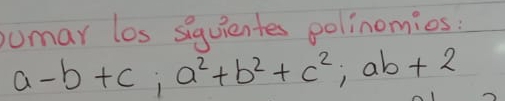 sumar los siguientes polinomios:
a-b+c; a²+b²+c²; ab+2